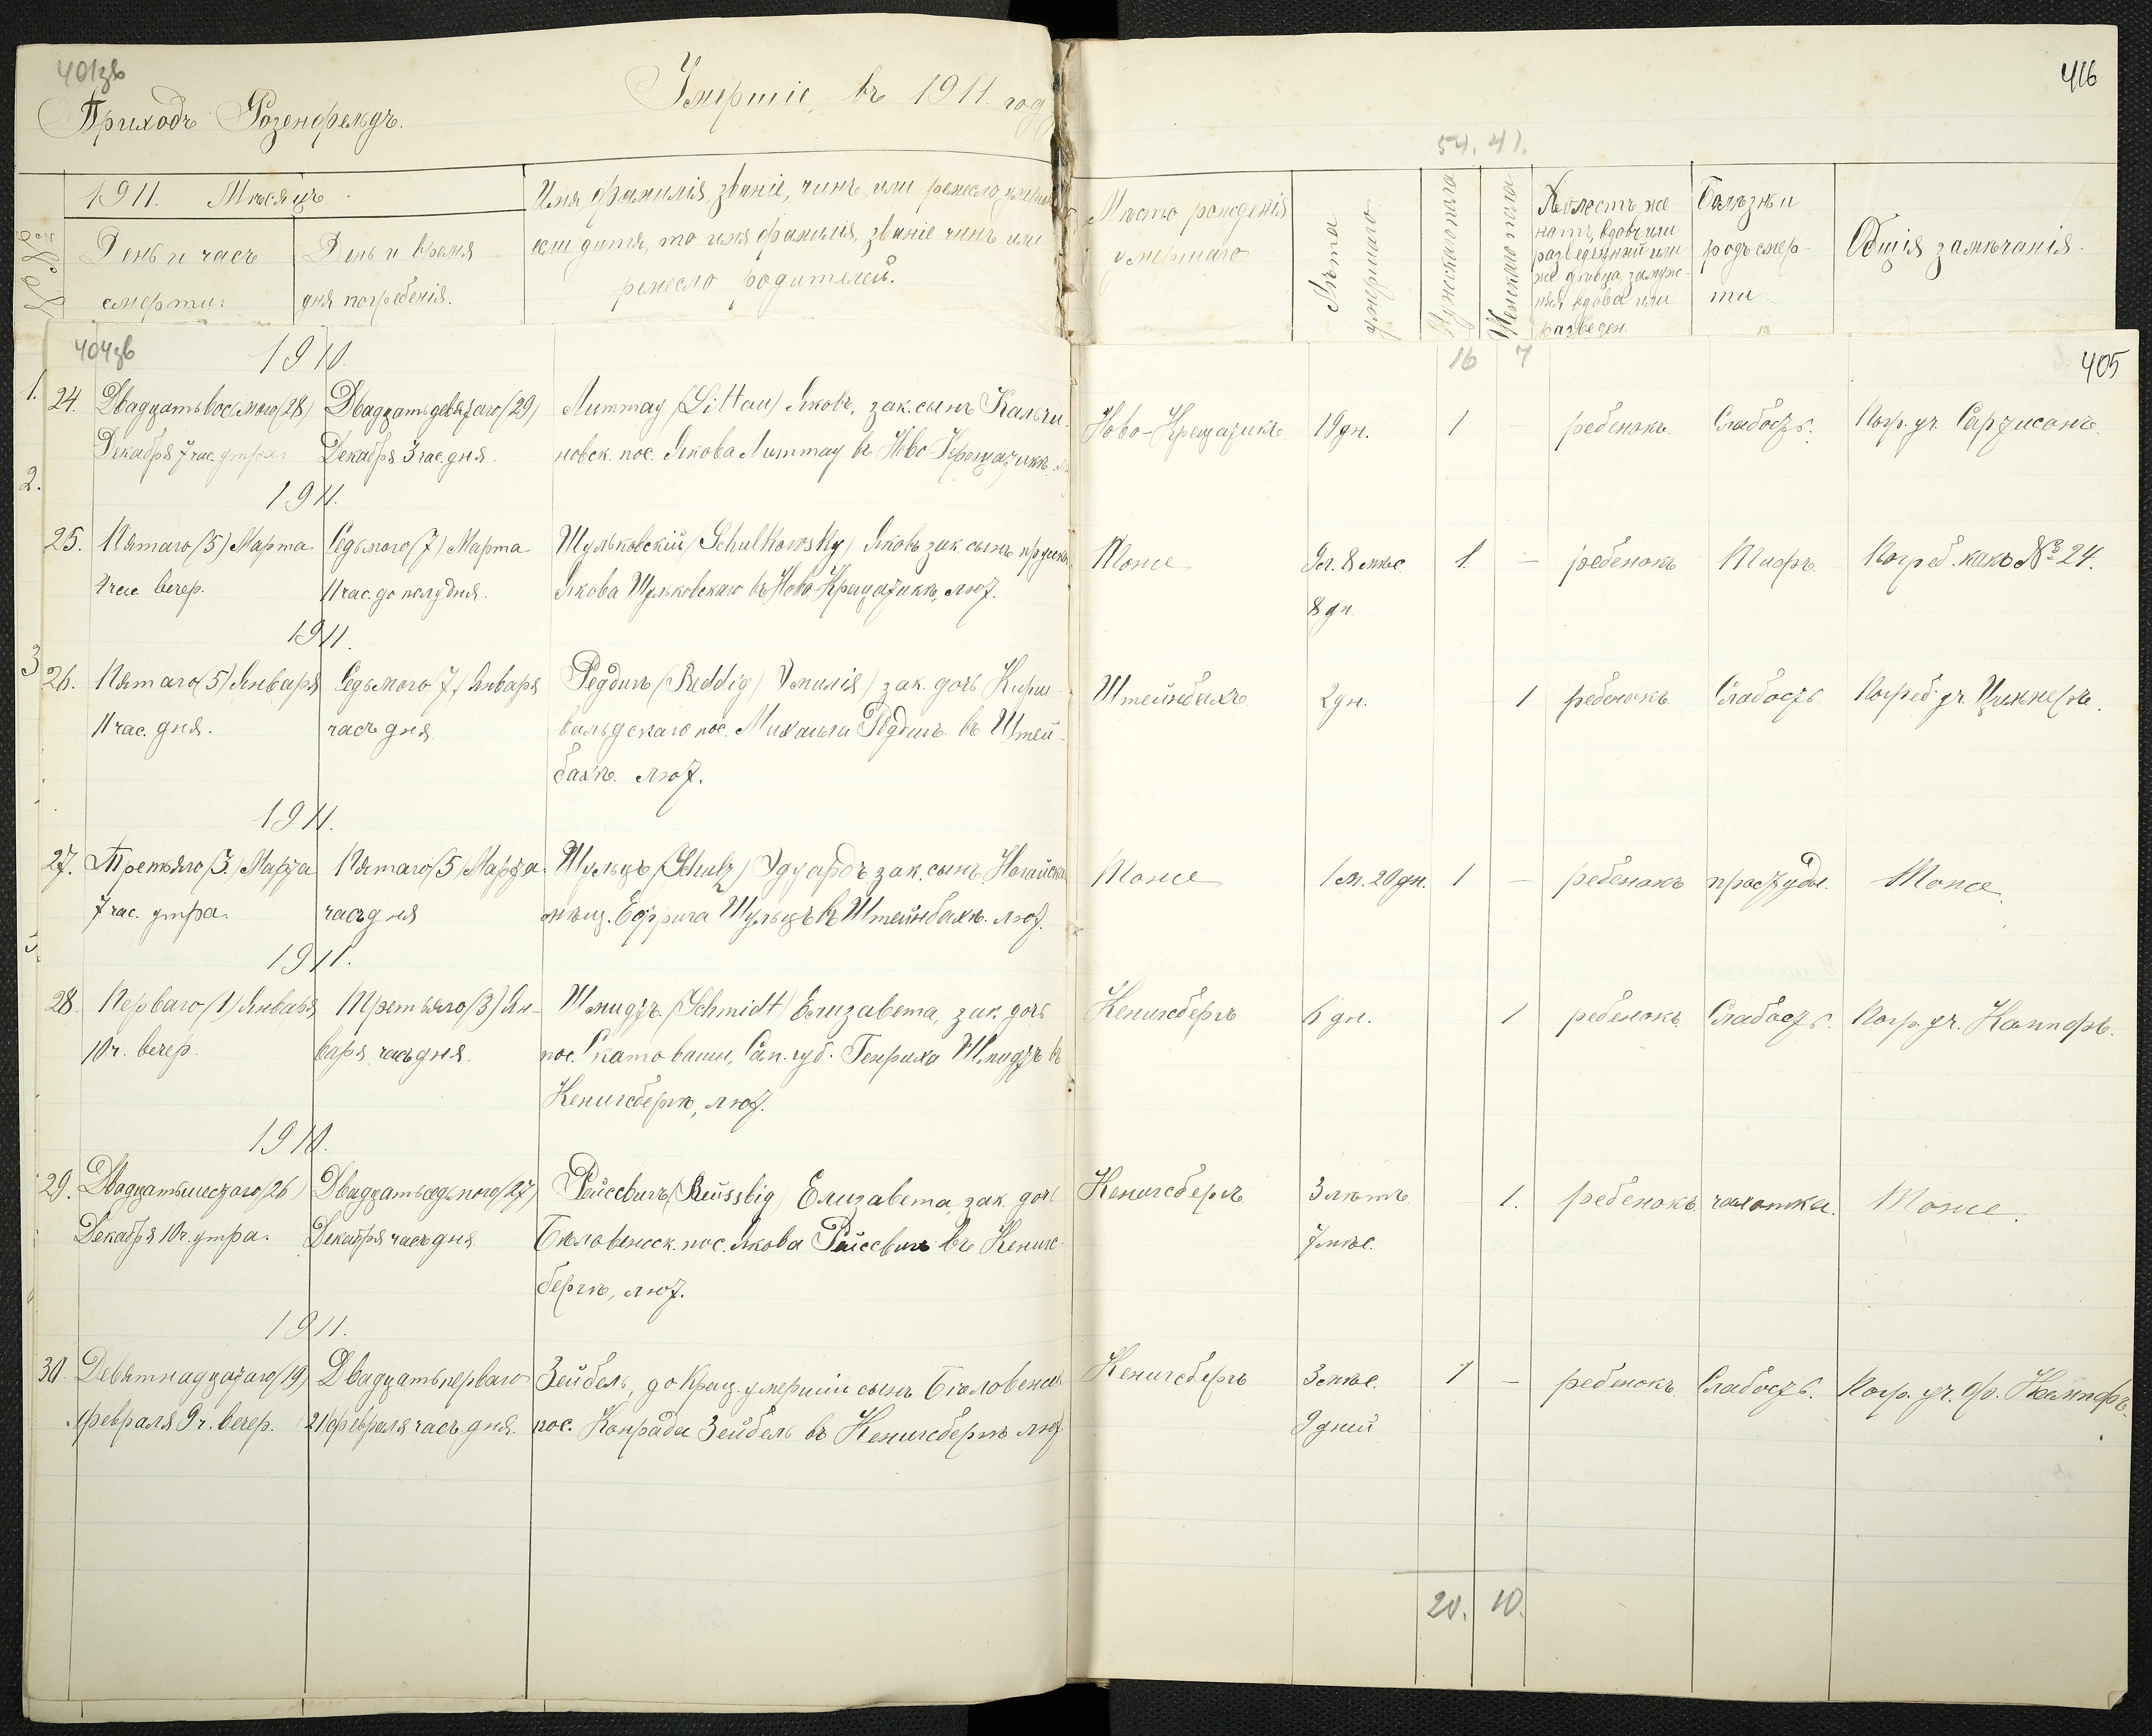 401зв
Приходъ Розенфельдъ.
Умершіе въ 1911 году
416
54. 41.
1911. Мѣсяцъ.
День и часъ смерти.
День и время дня погребенія.
Имя, фамилія, званіе, чинъ, или ремесло умерш
если дитя, то имя фамилія, званіе чинъ или
ремесло родителей.
Мѣсто рожденія
умершаго
Лѣта умершаго
Мужскаго пола
Женскаго пола
Холостъ, же
натъ, вдовъ или
разведенный или
же дѣвица замуж-
няя вдова или
разведен.
Болѣзнь и
родъ смер-
ти
Общія замѣчанія.
404зв
405
16 7
1.
2.
3
1910.
24. Двадцать восьмого (28) Двадцать девятаго (29) Литтау (Littau) Яковъ, зак. сынъ Кальчи- Ново-Крещатикъ 19 дн. 1 – ребенокъ Слабость. Погр. уч. Сартисонъ.
Декабря 7 час утра Декабря 3 час. дня. новск. пос. Якова Литтау въ Ново-Крещатикѣ.
1911.
25. Пятаго (5) Марта Седьмого (7) Марта Шульковскій (Schulkowsky) Яковъ зак. сынъ прусск. Тоже 8 мѣс. 1. – ребенокъ Тифъ. Погреб. какъ № 24.
4 час вечер. 11 час. до полудня. Якова Шульковскаго въ Ново-Крещатикѣ, лют. 8 дн.
1911.
26. Пятаго (5) Января Седьмого (7) Января Реддигъ (Reddig) Эмилія) зак. дочь Кирш- Штейнбахъ 2 дн. 1 ребенокъ Слабость Погреб. уч. Циннеръ.
11 час. дня. часъ дня вальдскаго пос. Михаила Реддигъ въ Штей-
бахѣ. лют.
1911.
27. Третьяго (3) Марта Пятаго (5) Марта Шульцъ (Schulz) Эдуардъ зак. сынъ Ногайска Тоже 1 м. 20 дн. 1 – ребенокъ простуда. Тоже.
7 час. утра. часъ дня мѣщ. Шульцъ въ Штейнбахѣ. лют.
1911.
28. Перваго (1) Января Третьяго (3) Ян- Шмидтъ (Schmidt) Елизавета, зак. дочь Кенигсбергъ 6 дн. 1 ребенокъ Слабость. Погр. уч. Кампфъ.
10 ч. вечер. варя часъ дня. пос. Скатоваши, Сам. губ. Генриха Шмидтъ въ
Кенигсбергѣ, лют.
1910.
29. Двадцать шестаго (26) Двадцать седьмого (27) Рейссвигъ (Reissvig) Елизавета, зак. дочь Кенигсбергъ 3 лѣтъ 1. ребенокъ чахотка. Тоже.
Декабря 10 ч. утра. Декабря часъ дня. Бѣловежск. пос. Якова Рейссвигъ въ Кенигс- 7 мѣс.
бергѣ, лют.
1911.
30. Девятнадцатаго (19) Двадцать перваго Зейбель, до крещ. умершій сынъ Бѣловежск Кенигсбергъ 3 мѣс. 1 – ребенокъ Слабость. Погр. уч. Ф. Кампфъ.
Февраля 9 ч. вечер. 21) Февраля часъ дня. пос. Конрада Зейбель въ Кенигсбергѣ лют 9 дней
20. 10.